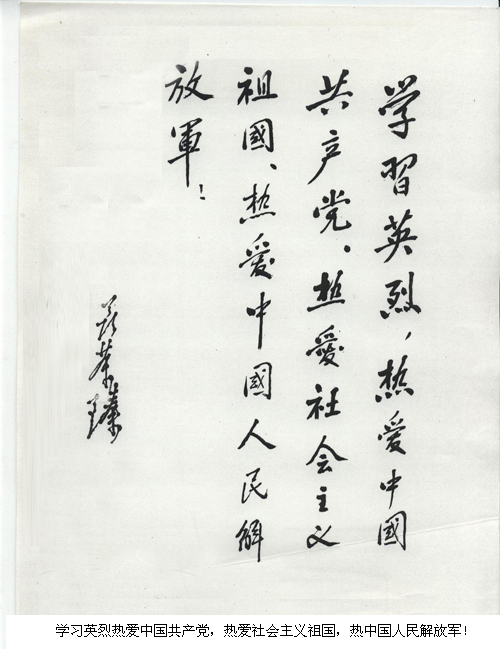 学習英烈，热爱中國
共产党、热愛社会主义
祖國、热爱中國人民解
放軍！
学习英烈热爱中国共产党，热爱社会主义祖国，热中国人民解放军！